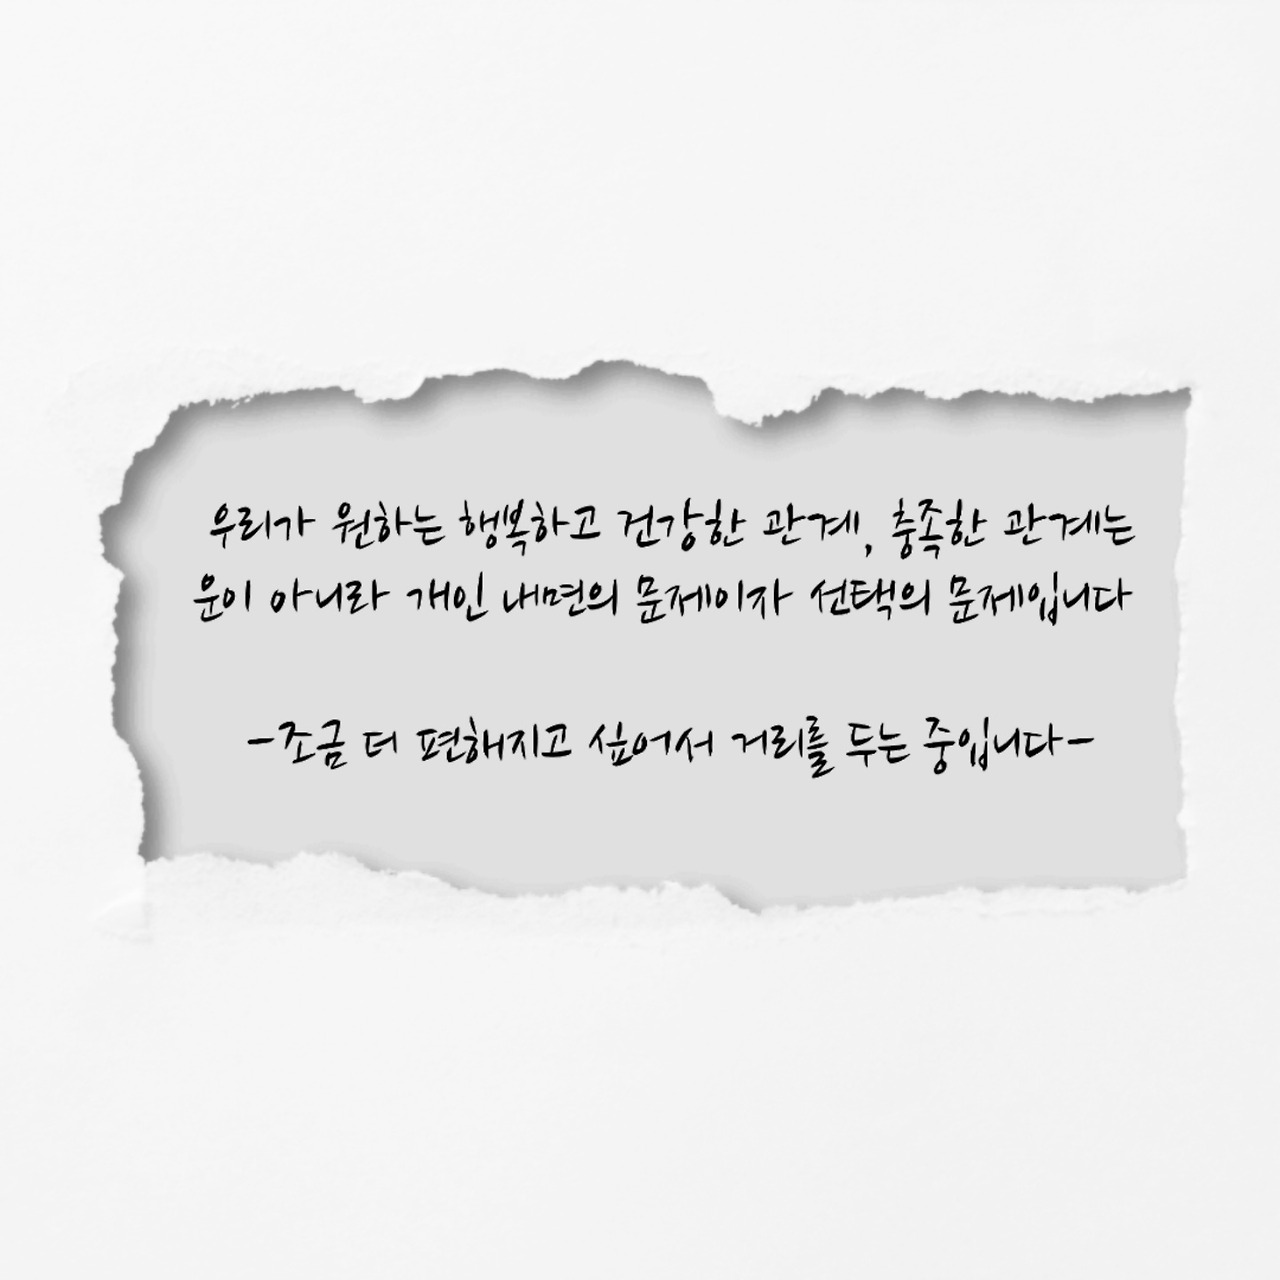 우리가 원하는 행복하고 건강한 관계, 충족한 관계는
운이 아니라 개인 내면의 문제이자 선택의 문제입니다
-조금 더 편해지고 싶어서 거리를 두는 중입니다-